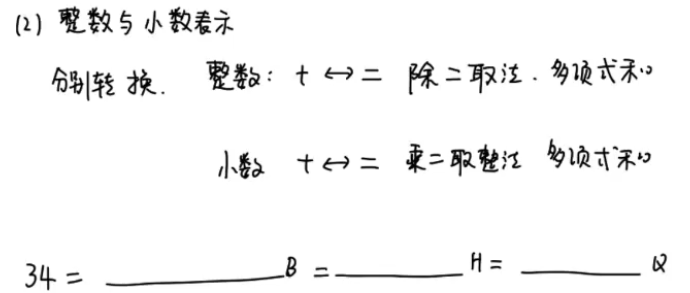 (2) 整数与小数表示
分别转换. 整数: 十 ↔ 二 除二取法. 多项式和
小数 十 ↔ 二 乘二取整法 多项式和
34 = ____________B = ________H = ________Q